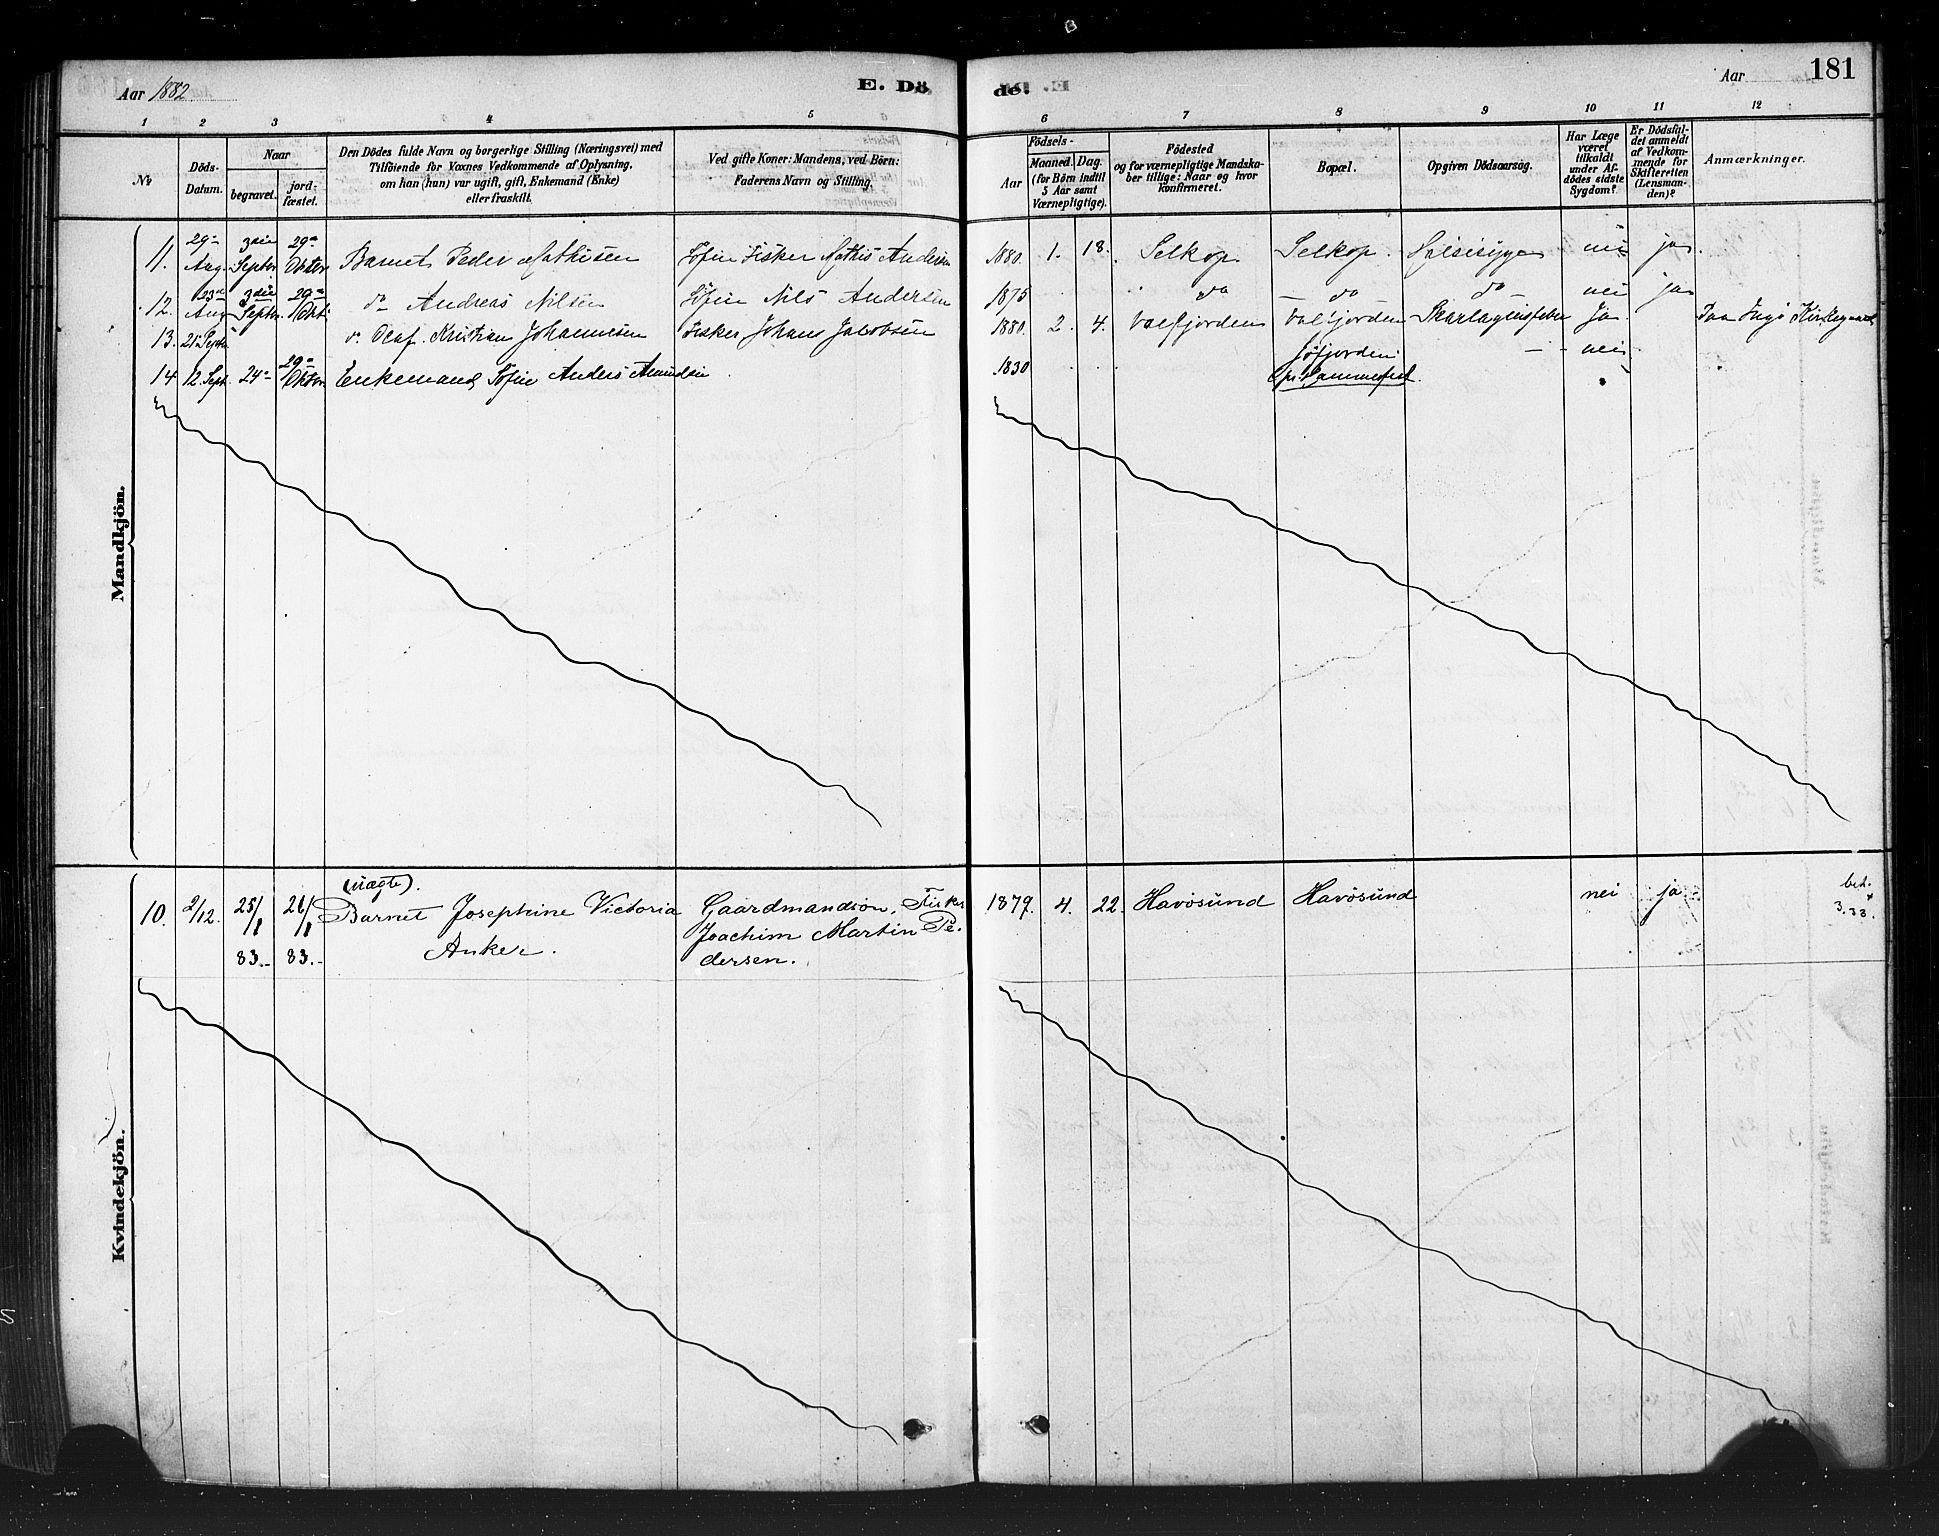 Aar 1882.
E. Döde.
Aar
181
1 2 3 4 5 6 7 8 9 10 11 12
№
Döds-Datum.
Naar
begravet.
jord-fæstet.
Den Dödes fulde Navn og borgerlige Stilling (Næringsvei) med
Tilföiende for Voxnes Vedkommende af Oplysning,
om han (hun) var ugift, gift, Enkemand (Enke)
eller fraskilt.
Ved gifte Koner: Mandens, ved Börn:
Faderens Navn og Stilling.
Födsels-
Aar
Maaned. Dag.
(for Börn indtil
5 Aar samt
Værnepligtige).
Födested
og for værnepligtige Mandska-
ber tillige: Naar og hvor
konfirmeret.
Bopæl.
Opgiven Dödsaarsag.
Har Læge
været
tilkaldt
under Af-
dödes sidste
Sygdom?
Er Dödsfal-
det anmeldt
af Vedkom-
mende for
Skifteretten
(Lensman-
den)?
Anmærkninger.
Mandkjön.
11. 29de Aug. 3die Septbr. 29de Oktbr. Barnet Peder Mathisen Söfin Fisker Mathis Andersen 1880. 1. 18. Selkop. Selkop. Halssyge nei ja
12. 23de Aug. 3die Septbr. 29de Okt. do Andreas Nilsen Söfin Nils Andersen 1875 do do do nei ja
13. 21de Septbr. do Olaf Kristian Johannesen Fisker Johans Jakobsen 1880. 2. 4. Valfjorden Valfjorden Skarlagensfeber Ja. Paa Ingö Kirkegaard
14 12. Sept. 24de 29de Oktbr. Enkemand Söfin Anders Amundsen 1830 Jöfjorden
pr. Hammerfest. nei
Kvindekjön.
(uægte).
10. 2/12. 25/1 83. 26/1 83. Barnet Josephine Victoria
Anker.
Gaardmandsön, Fisker
Joachim Martin Pe-
dersen.
1879. 4. 22. Havösund Havösund nei ja
bet.
3.33.